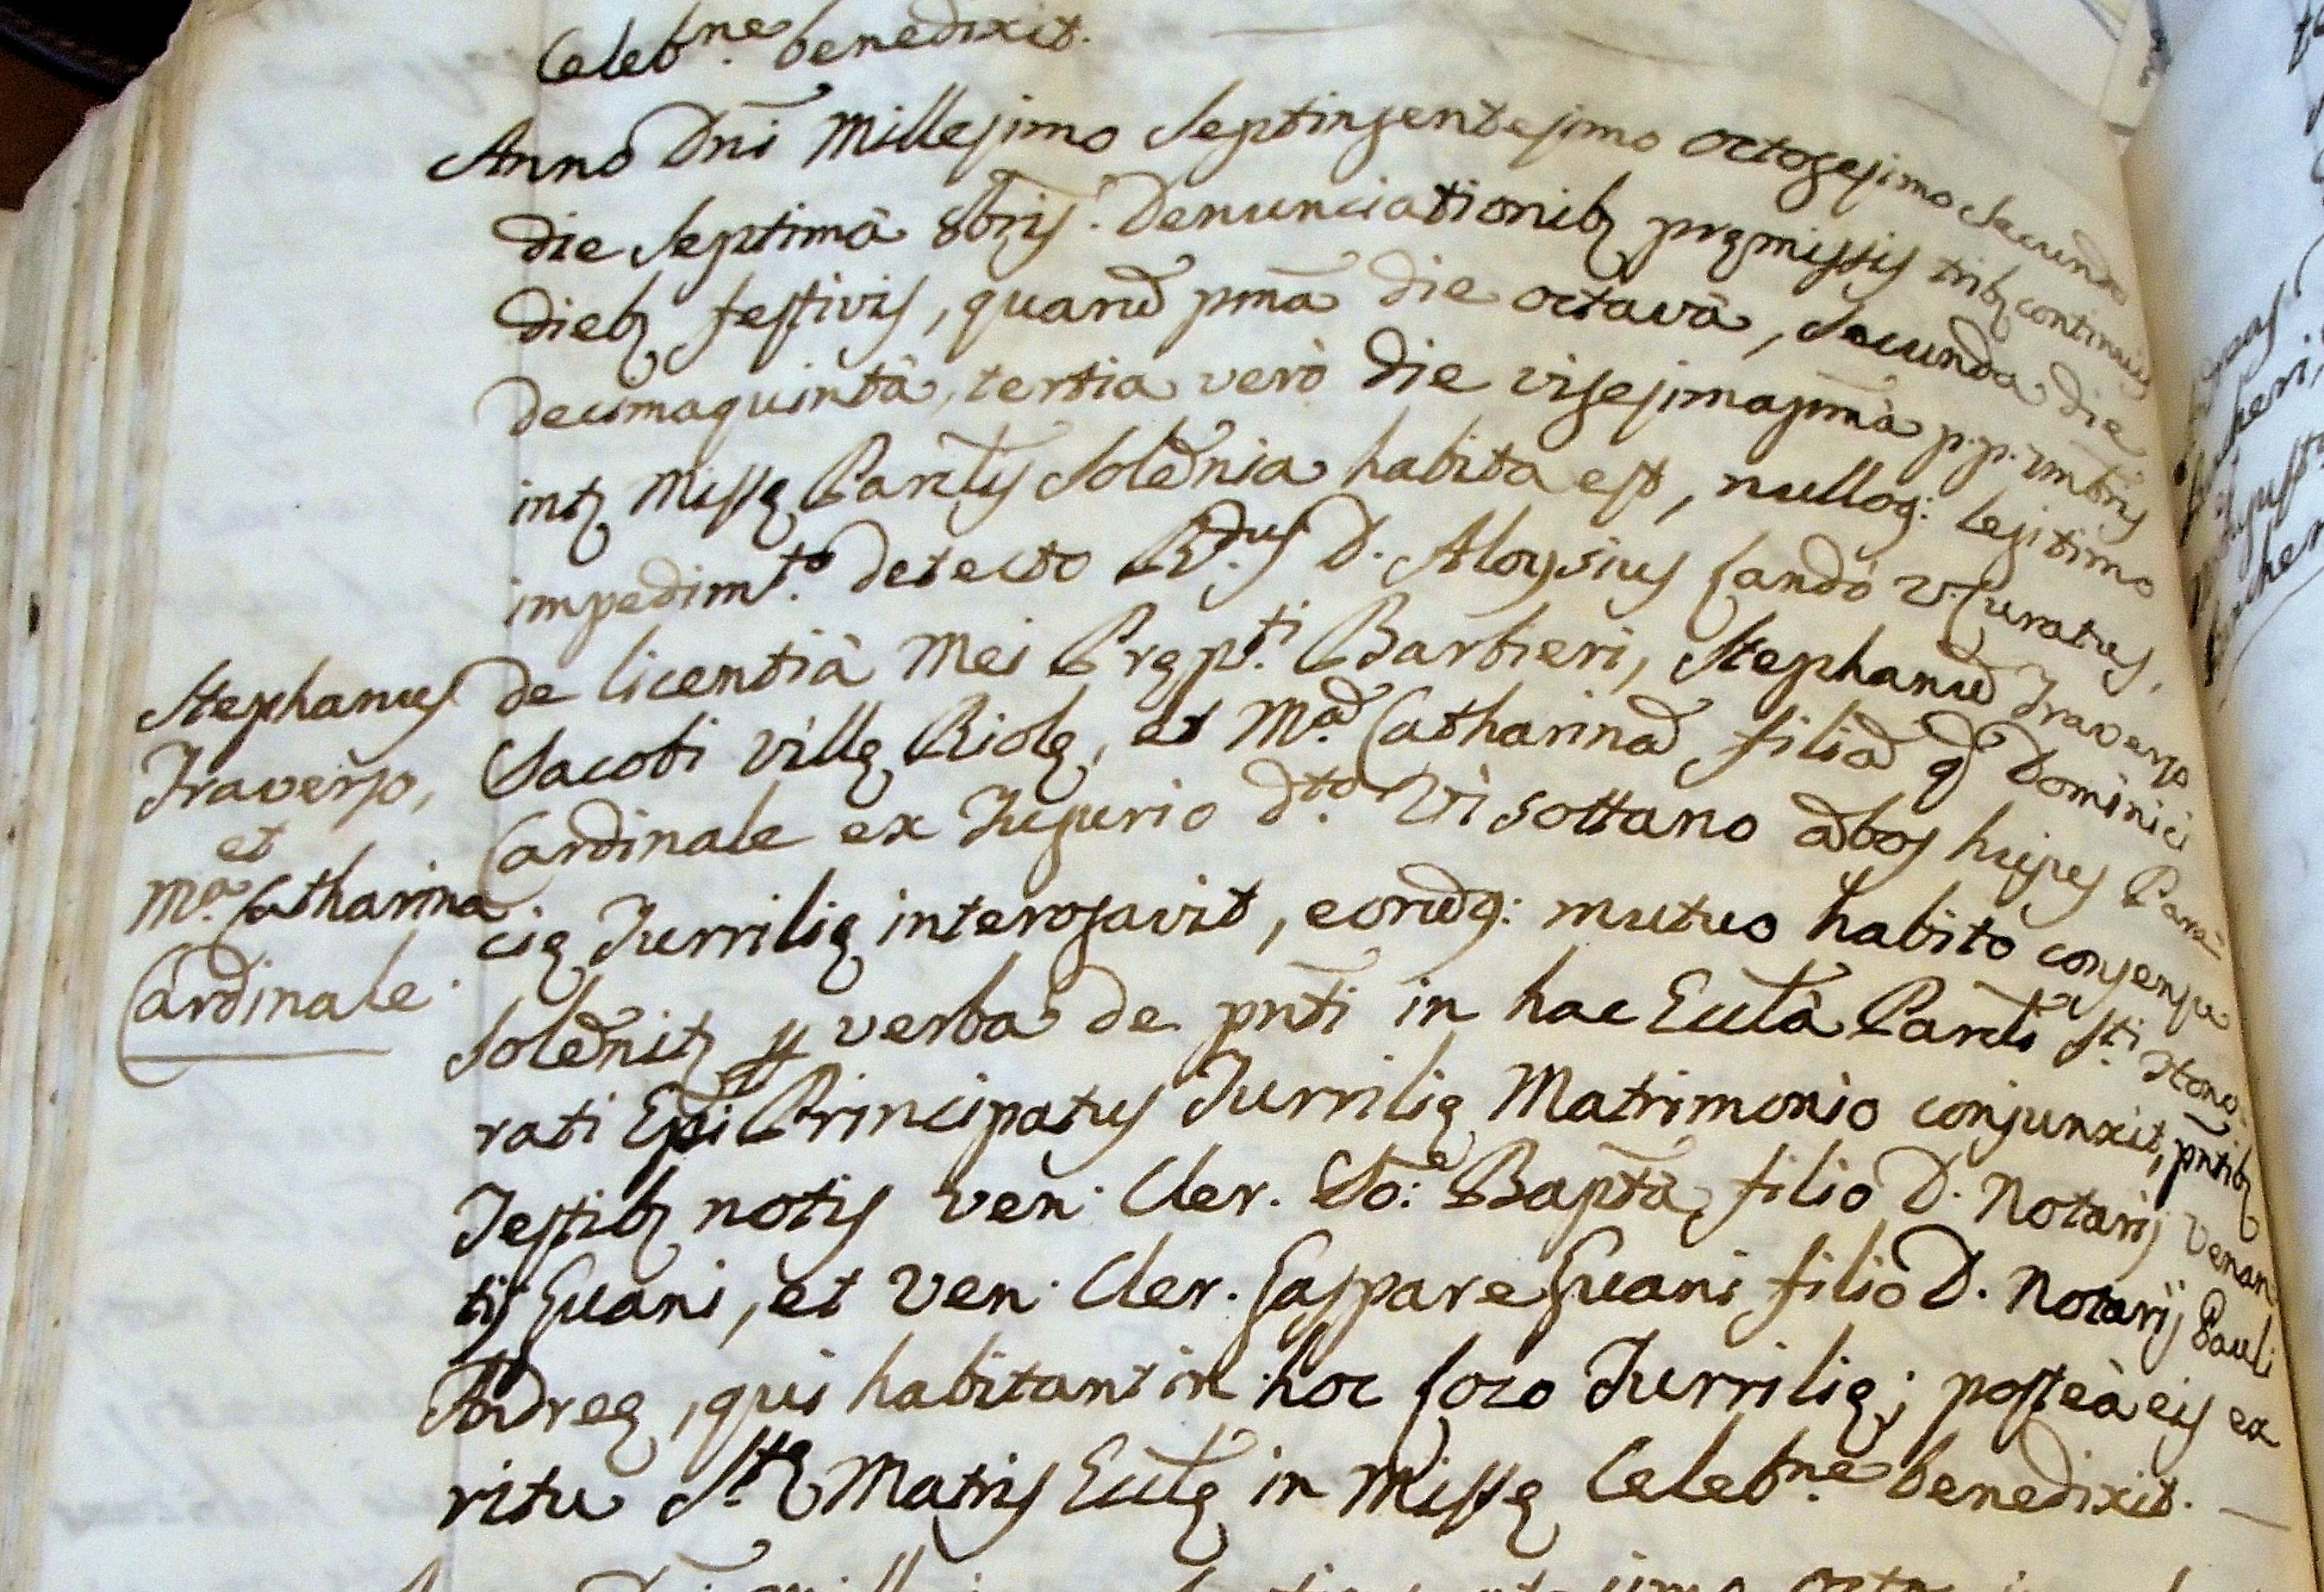 Celeb.ne benedixit.
Anno Dñi Millesimo Septingentesimo octogesimo Secundo
die Septimâ 8bris. Denunciationib; pręmissis trib; continuis
dieb; festivis, quarũ pmã die octavâ, Secunda die
decimaquintâ, tertia verò die vigesimapmâ p.p. 7mbris
int; Missę Parlis Solẽnia habita est, nulloq: legitimo
impedimt.o detecto R.dus D. Aloysius Candò V. Curatus,
de licentiâ Mei Pręp.ti Barbieri, Stephanũ Traverso
Jacobi villę Riolę, et M.ã Catharinã filiã q̃ Dominici
Cardinale ex Tugurio d.to Vì sottano ãbos hujus Paro-
cię Turrilię interogavit, eorũq: mutuo habito consensu
Solẽnit; p verba de pñti in hac Eccl̃â Parlĩ S.ti Hono-
rati Epĩ Principatus Turrilię Matrimonio conjunxit, pñtib;
Testib; notis Ven. Cler. Jo:e Bapt̃â filio D. Notarij Venan
tij Guani, et Ven. Cler. Gaspare Guani filio D. Notarij Pauli
Andreę, qui habitant in hoc foro Turrilię; posteà eis ex
ritu S.tę Matris Eccl̃ę in Missę Celeb.ne benedixit.
Stephanus
Traverso,
et
M.a Catharina
Cardinale.